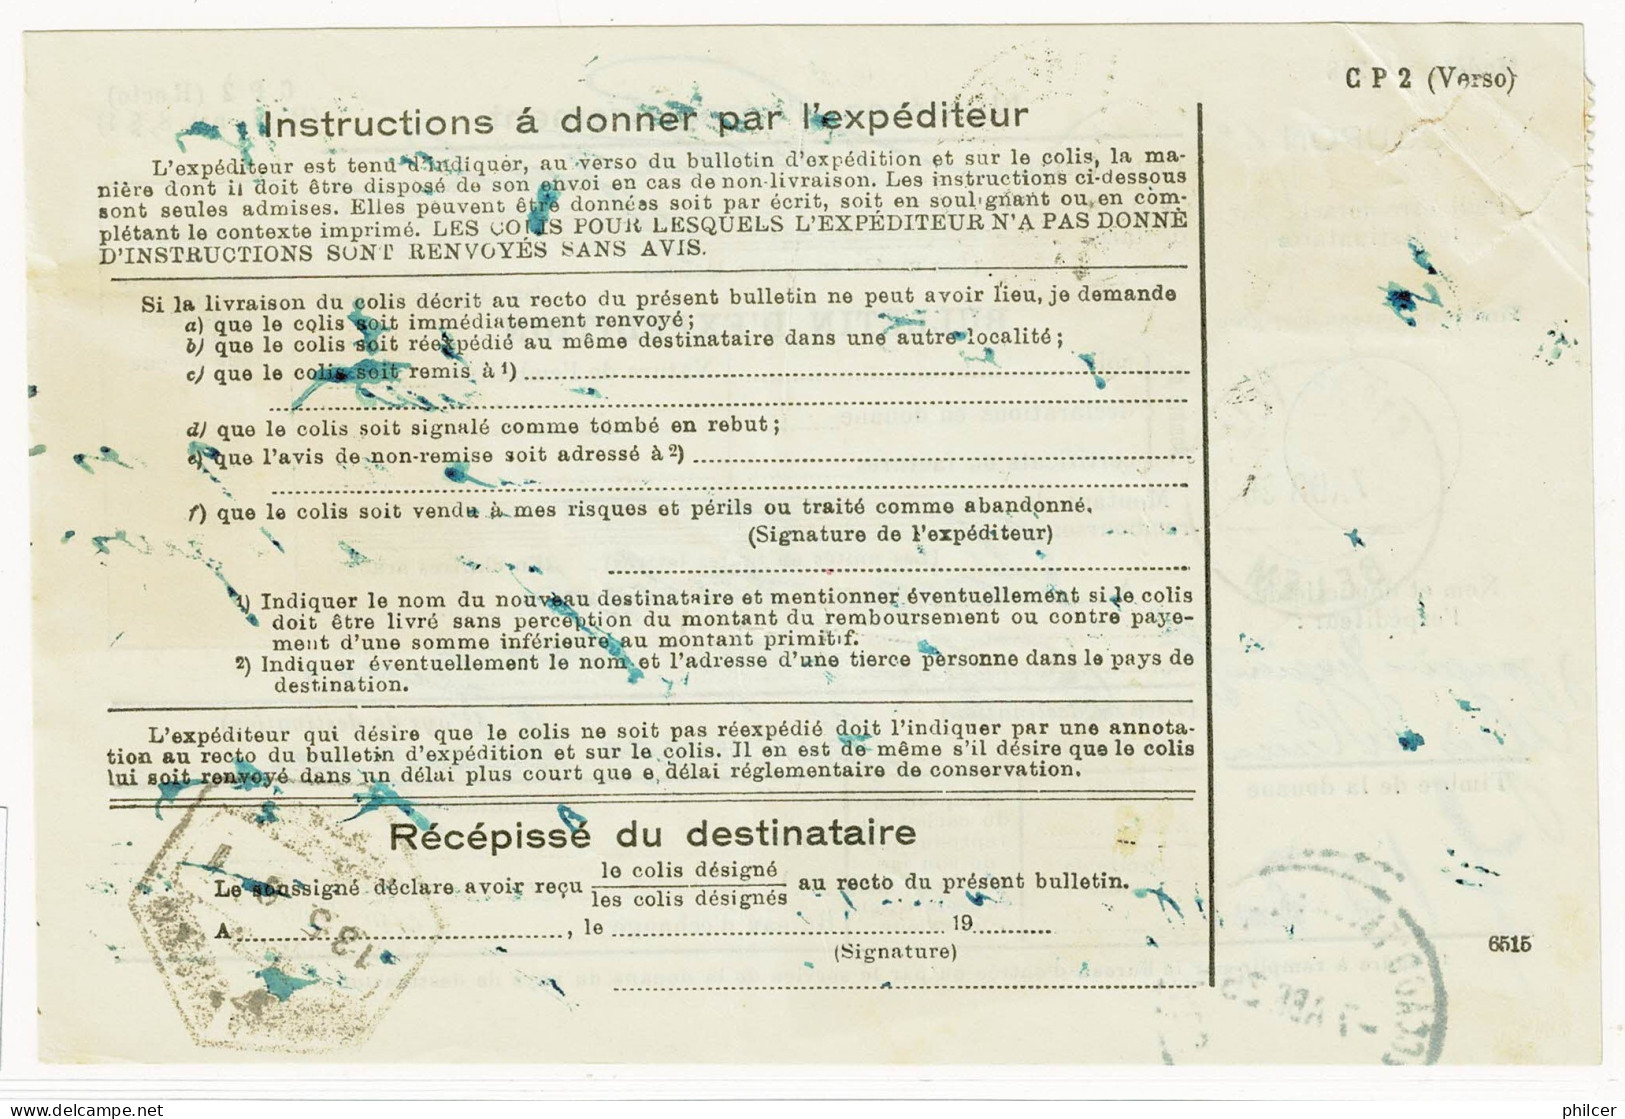 C P 2 (Verso)
Instructions á donner par l'expéditeur
L'expéditeur est tenu d'indiquer, au verso du bulletin d'expédition et sur le colis, la ma-
nière dont il doit être disposé de son envoi en cas de non-livraison. Les instructions ci-dessous
sont seules admises. Elles peuvent être données soit par écrit, soit en soulignant ou en com-
plétant le contexte imprimé. LES COLIS POUR LESQUELS L'EXPÉDITEUR N'A PAS DONNÉ
D'INSTRUCTIONS SONT RENVOYÉS SANS AVIS.
Si la livraison du colis décrit au recto du présent bulletin ne peut avoir lieu, je demande
a) que le colis soit immédiatement renvoyé;
b) que le colis soit réexpédié au même destinataire dans une autre localité;
c) que le colis soit remis à ¹)
d) que le colis soit signalé comme tombé en rebut;
e) que l'avis de non-remise soit adressé à ²)
f) que le colis soit vendu à mes risques et périls ou traité comme abandonné.
(Signature de l'expéditeur)
1) Indiquer le nom du nouveau destinataire et mentionner éventuellement si le colis
doit être livré sans perception du montant du remboursement ou contre paye-
ment d'une somme inférieure au montant primitif.
2) Indiquer éventuellement le nom et l'adresse d'une tierce personne dans le pays de
destination.
L'expéditeur qui désire que le colis ne soit pas réexpédié doit l'indiquer par une annota-
tion au recto du bulletin d'expédition et sur le colis. Il en est de même s'il désire que le colis
lui soit renvoyé dans un délai plus court que e délai réglementaire de conservation.
Récépissé du destinataire
Le soussigné déclare avoir reçu le colis désigné / les colis désignés au recto du présent bulletin.
A, le 19
(Signature)
6515
philcer